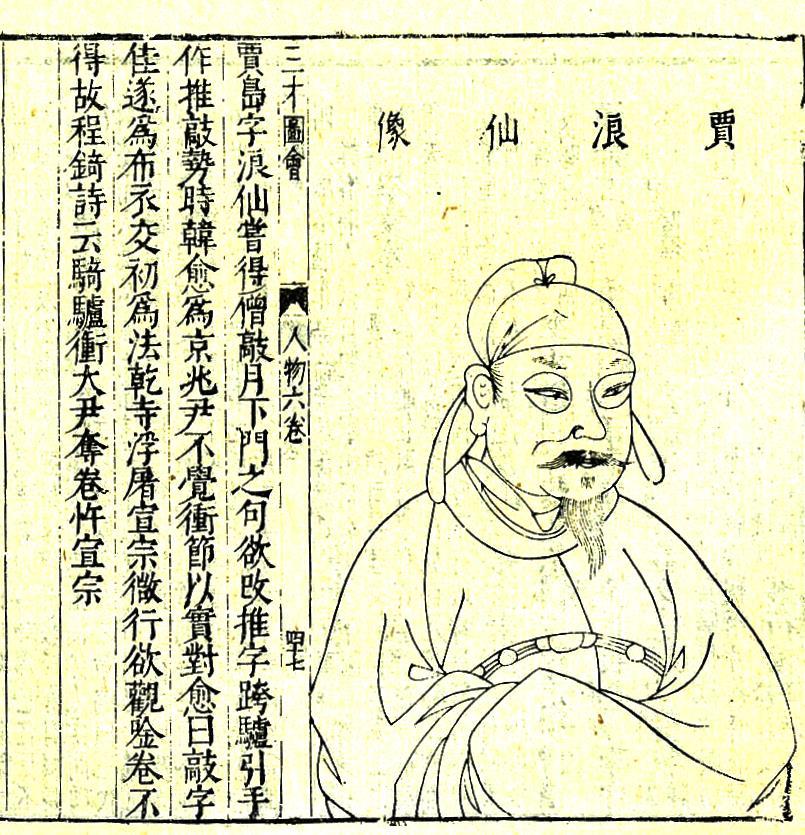 賈浪仙像
三才圖會 人物六卷 四十七
賈島字浪仙嘗得僧敲月下門之句欲改推字跨驢引手
作推敲勢時韓愈爲京兆尹不覺衝節以實對愈曰敲字
佳遂爲布衣交初爲法乾寺浮屠宣宗微行欲觀唫卷不
得故程錡詩云騎驢衝大尹奪卷忤宣宗